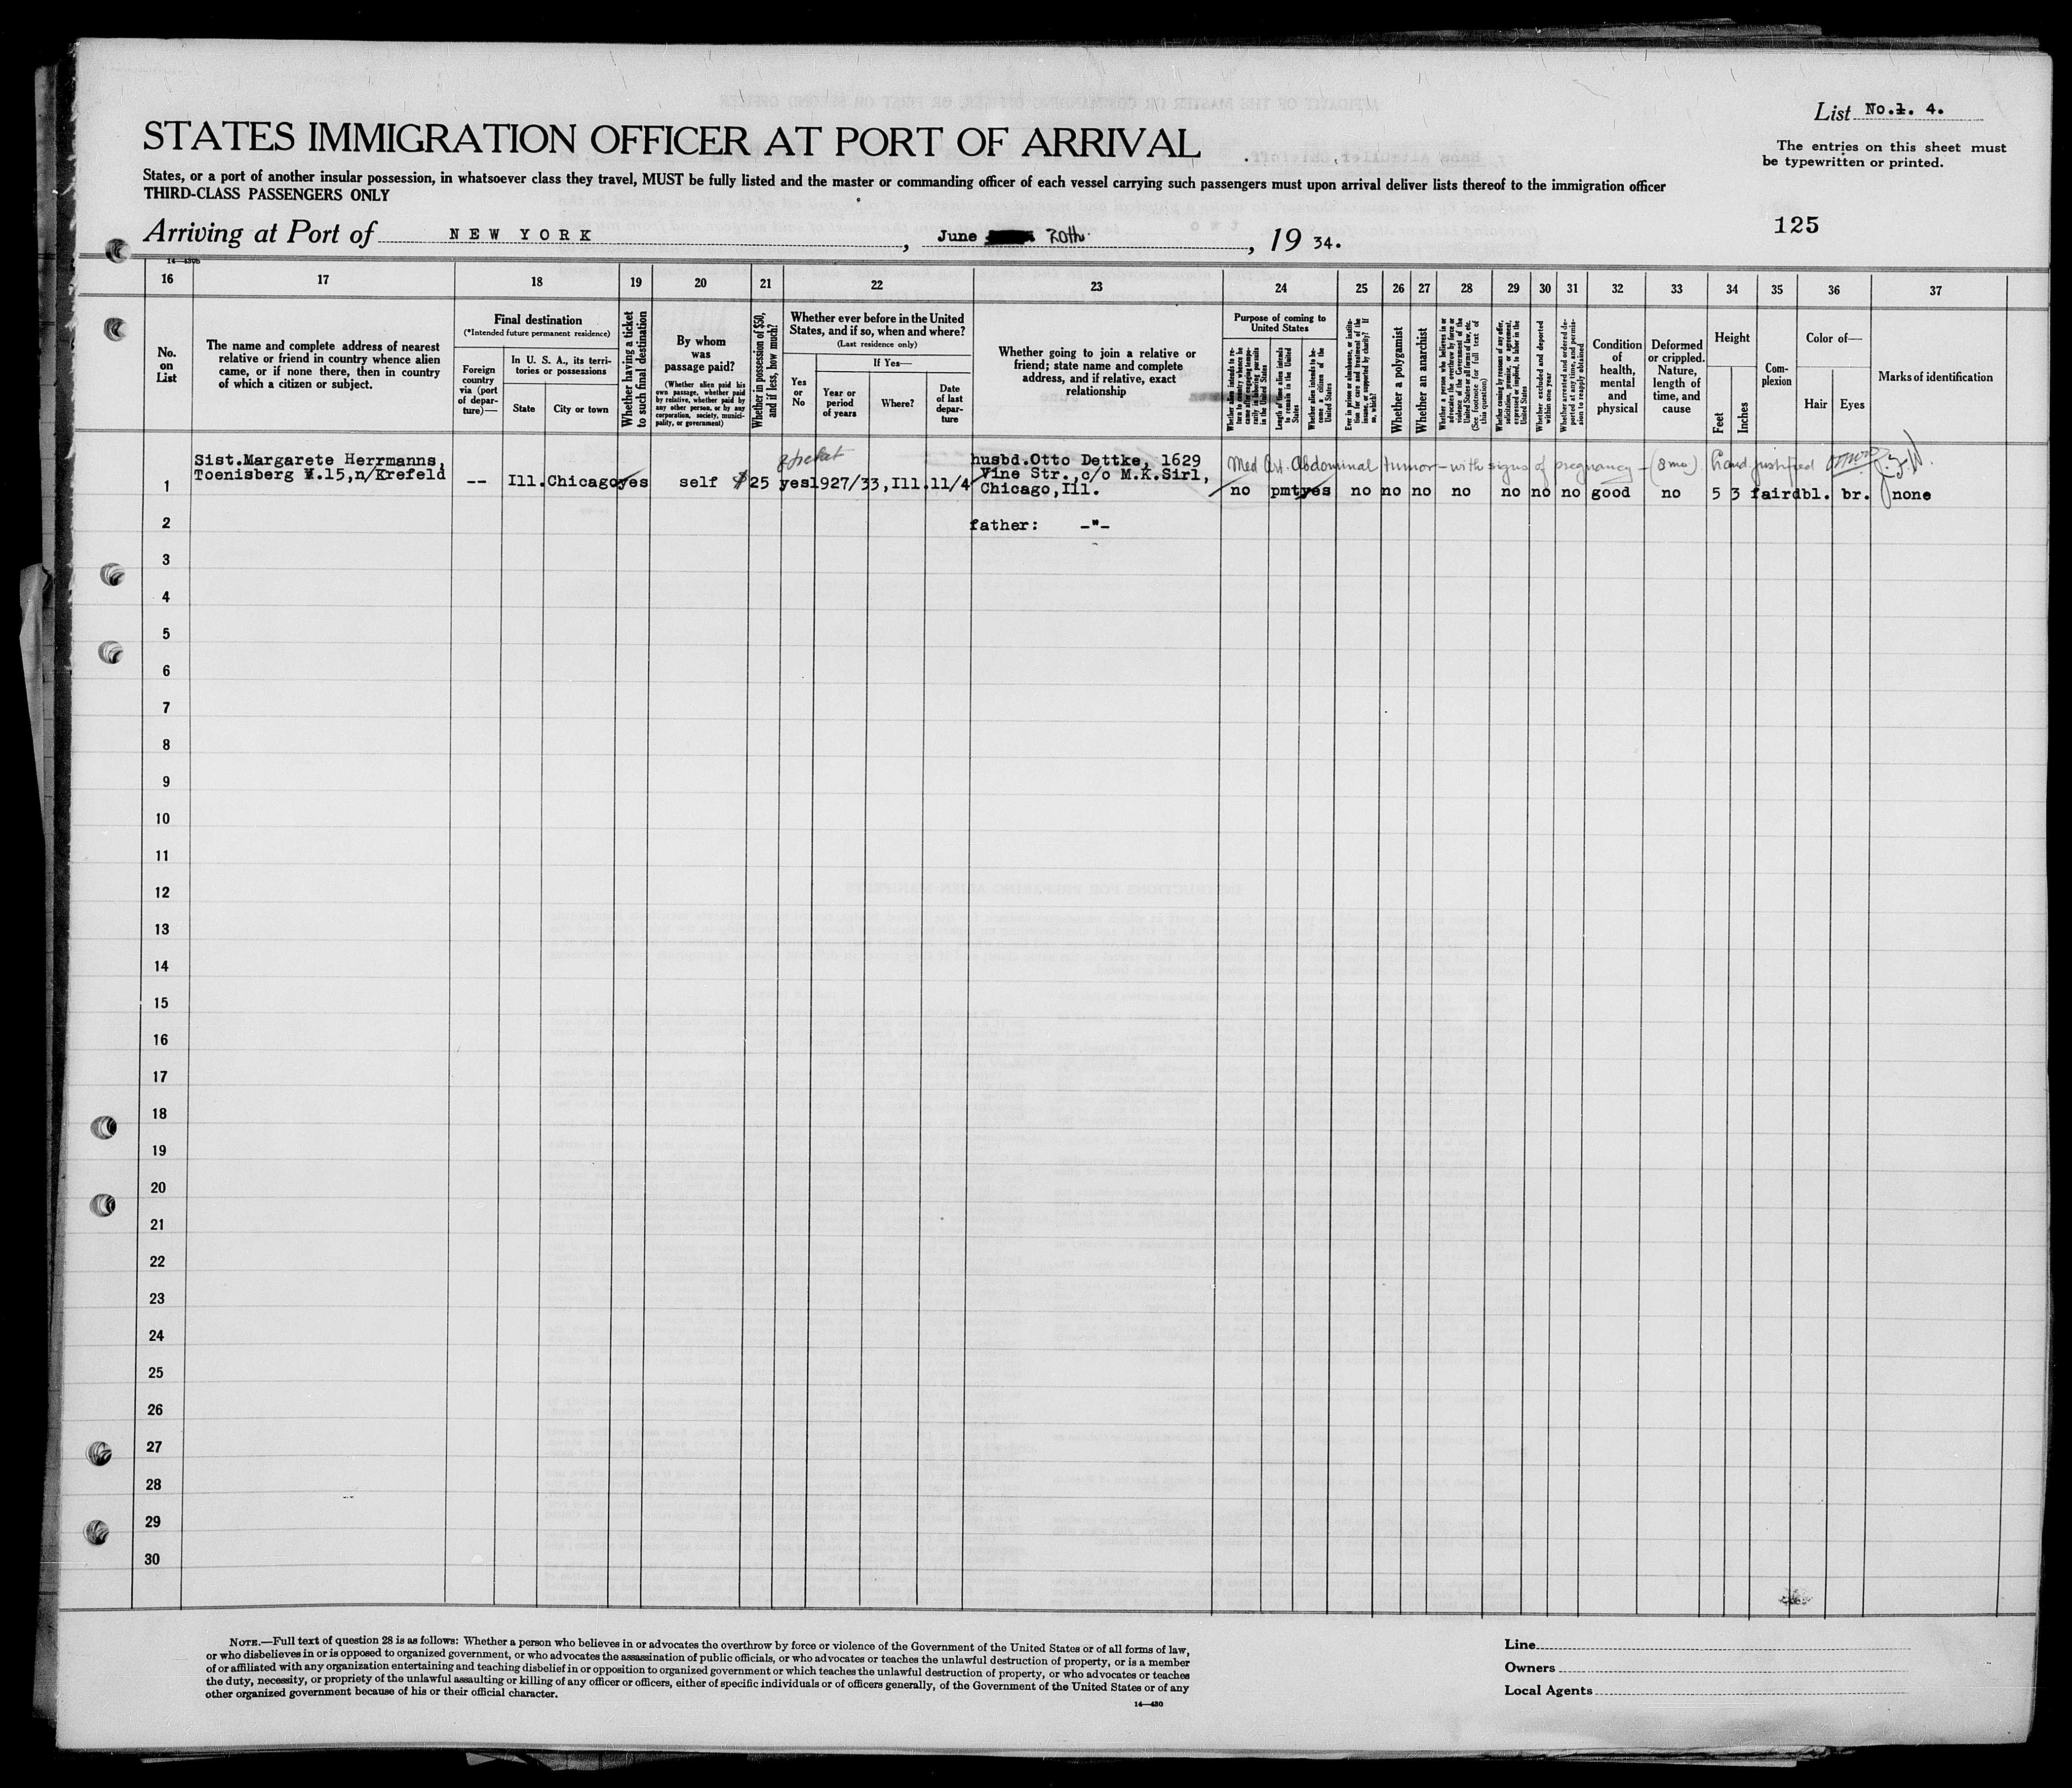 List No.1. 4.
STATES IMMIGRATION OFFICER AT PORT OF ARRIVAL
The entries on this sheet must
be typewritten or printed.
States, or a port of another insular possession, in whatsoever class they travel, MUST be fully listed and the master or commanding officer of each vessel carrying such passengers must upon arrival deliver lists thereof to the immigration officer
THIRD-CLASS PASSENGERS ONLY
125
Arriving at Port of NEW YORK, June 20th, 19 34.
14—430b
16 17 18 19 20 21 22 23 24 25 26 27 28 29 30 31 32 33 34 35 36 37
No.
on
List
The name and complete address of nearest
relative or friend in country whence alien
came, or if none there, then in country
of which a citizen or subject.
Final destination
(*Intended future permanent residence)
Foreign
country
via (port
of depar-
ture)—
In U. S. A., its terri-
tories or possessions
State
City or town
Whether having a ticket
to such final destination
By whom
was
passage paid?
(Whether alien paid his
own passage, whether paid
by relative, whether paid by
any other person, or by any
corporation, society, munici-
pality, or government)
Whether in possession of $50,
and if less, how much?
Whether ever before in the United
States, and if so, when and where?
(Last residence only)
Yes
or
No
If Yes—
Year or
period
of years
Where?
Date
of last
depar-
ture
Whether going to join a relative or
friend; state name and complete
address, and if relative, exact
relationship
Purpose of coming to
United States
Whether alien intends to re-
turn to country whence he
came after engaging tempo-
rarily in laboring pursuits
in the United States
Length of time alien intends
to remain in the United
States
Whether alien intends to be-
come a citizen of the
United States
Ever in prison or almshouse, or institu-
tion for care and treatment of the
insane, or supported by charity? If
so, which?
Whether a polygamist
Whether an anarchist
Whether a person who believes in or
advocates the overthrow by force or
violence of the Government of the
United States or all forms of law, etc.
(See footnote for full text of
this question)
Whether coming by reason of any offer,
solicitation, promise, or agreement,
expressed or implied, to labor in the
United States
Whether excluded and deported
within one year
Whether arrested and ordered de-
ported at any time, and permis-
sion to reapply obtained
Condition
of
health,
mental
and
physical
Deformed
or crippled.
Nature,
length of
time, and
cause
Height
Feet
Inches
Com-
plexion
Color of—
Hair
Eyes
Marks of identification
Sist.Margarete Herrmanns,
Toenisberg W.15,n/Krefeld
1 -- Ill. Chicago yes self $25 yes 1927/33,Ill. 11/4
husbd.Otto Dettke, 1629
Vine Str.,c/o M.K.Sirl,
Chicago,Ill.
Med Abdominal tumor - with signs of pregnancy - (8 mo)
no pmt yes no no no no no no no good no 5 3 fair dbl. br. none
2 father: -"-
3
4
5
6
7
8
9
10
11
12
13
14
15
16
17
18
19
20
21
22
23
24
25
26
27
28
29
30
NOTE.—Full text of question 28 is as follows: Whether a person who believes in or advocates the overthrow by force or violence of the Government of the United States or of all forms of law,
or who disbelieves in or is opposed to organized government, or who advocates the assassination of public officials, or who advocates or teaches the unlawful destruction of property, or is a member
of or affiliated with any organization entertaining and teaching disbelief in or opposition to organized government or which teaches the unlawful destruction of property, or who advocates or teaches
the duty, necessity, or propriety of the unlawful assaulting or killing of any officer or officers, either of specific individuals or of officers generally, of the Government of the United States or of any
other organized government because of his or their official character.
14—430
Line
Owners
Local Agents